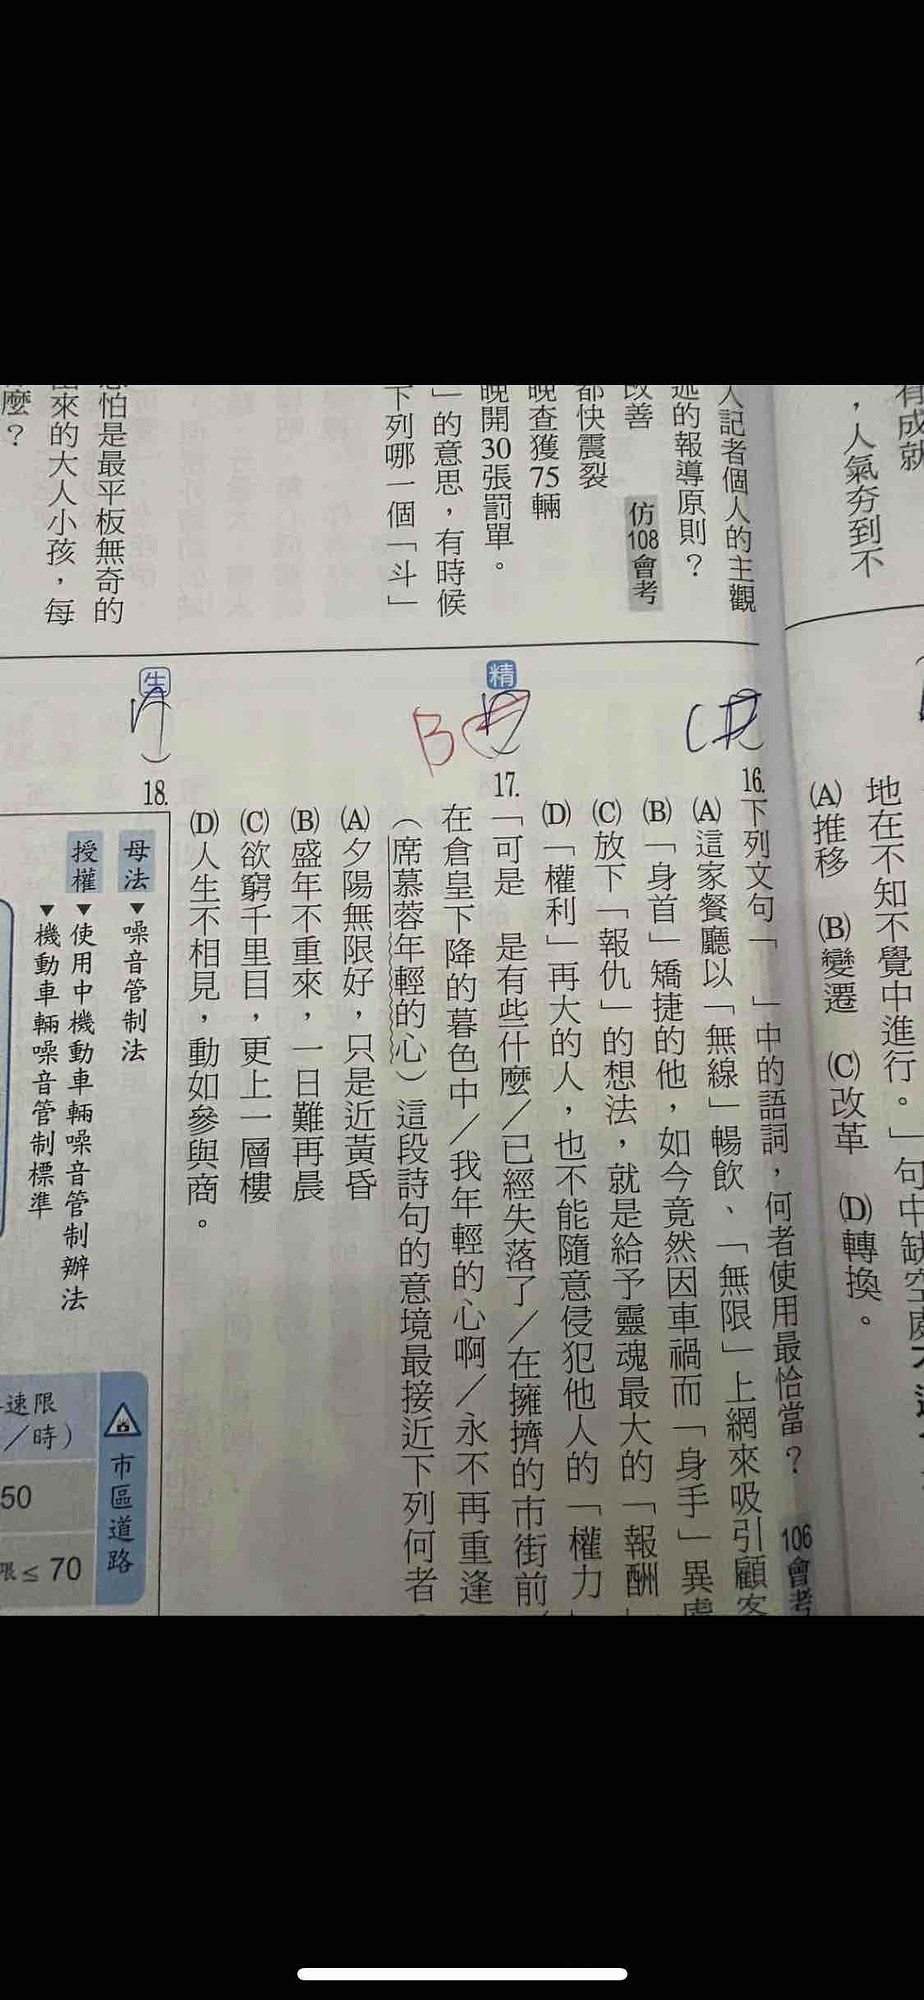 有成就
，人氣夯到不
人記者個人的主觀
述的報導原則？
改善 仿108會考
都快震裂
晚查獲75輛
晚開30張罰單。
」的意思，有時候
下列哪一個「斗」
恐怕是最平板無奇的
出來的大人小孩，每
麼？
地在不知不覺中進行。」句中缺空處不
(A)推移 (B)變遷 (C)改革 (D)轉換。
C
16.下列文句「 」中的語詞，何者使用最恰當？ 106會考
(A)這家餐廳以「無線」暢飲、「無限」上網來吸引顧客
(B)「身首」矯捷的他，如今竟然因車禍而「身手」異處
(C)放下「報仇」的想法，就是給予靈魂最大的「報酬」
(D)「權利」再大的人，也不能隨意侵犯他人的「權力」
精
B
17.「可是 是有些什麼／已經失落了／在擁擠的市街前／
在倉皇下降的暮色中／我年輕的心啊／永不再重逢
（席慕蓉年輕的心）這段詩句的意境最接近下列何者
(A)夕陽無限好，只是近黃昏
(B)盛年不重來，一日難再晨
(C)欲窮千里目，更上一層樓
(D)人生不相見，動如參與商。
生
A
18.
母法▼噪音管制法
授權▼使用中機動車輛噪音管制辦法
▼機動車輛噪音管制標準
市區道路
速限
／時）
50
限≤70